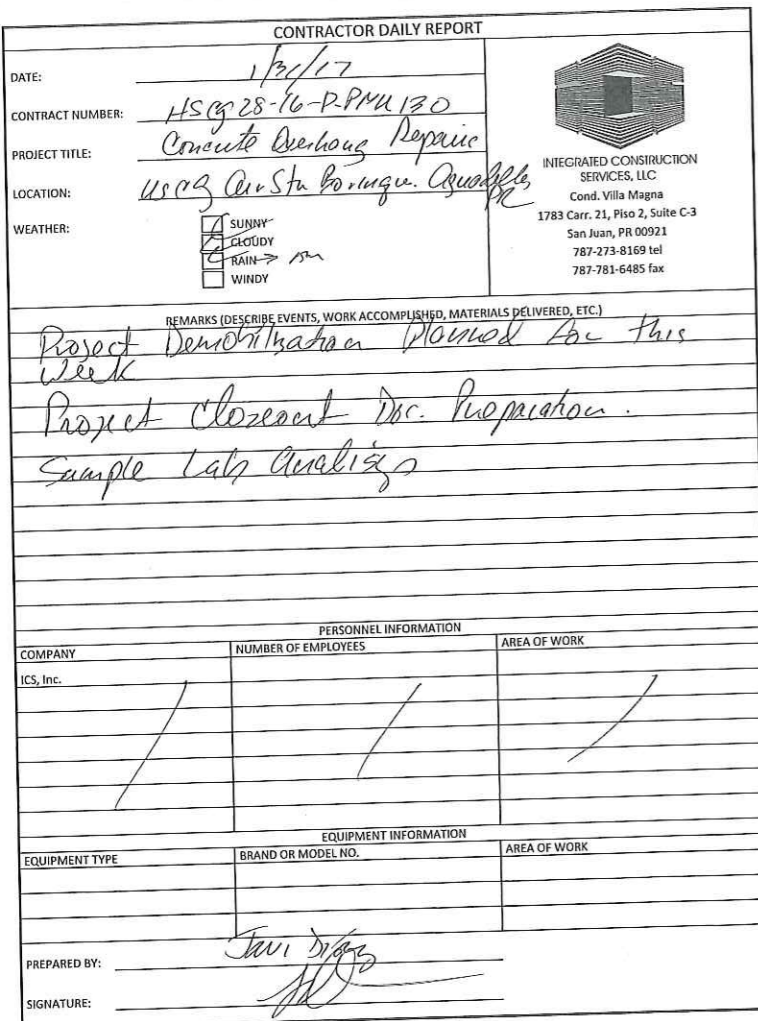 CONTRACTOR DAILY REPORT
DATE: 1/31/17
CONTRACT NUMBER: HSCG 28-16-P-PMU 130
PROJECT TITLE: Concrete Overhang Repairs
LOCATION: USCG Air Stn Borinque. Aguadilla PR
WEATHER:
SUNNY
CLOUDY
RAIN →
WINDY
INTEGRATED CONSTRUCTION
SERVICES, LLC
Cond. Villa Magna
1783 Carr. 21, Piso 2, Suite C-3
San Juan, PR 00921
787-273-8169 tel
787-781-6485 fax
REMARKS (DESCRIBE EVENTS, WORK ACCOMPLISHED, MATERIALS DELIVERED, ETC.)
Project Demobilization Planned for this
week
Project Closeout Doc. Preparation.
Sample Lab Analisys
PERSONNEL INFORMATION
COMPANY NUMBER OF EMPLOYEES AREA OF WORK
ICS, Inc.
EQUIPMENT INFORMATION
EQUIPMENT TYPE BRAND OR MODEL NO. AREA OF WORK
PREPARED BY: Javi Díaz
SIGNATURE: